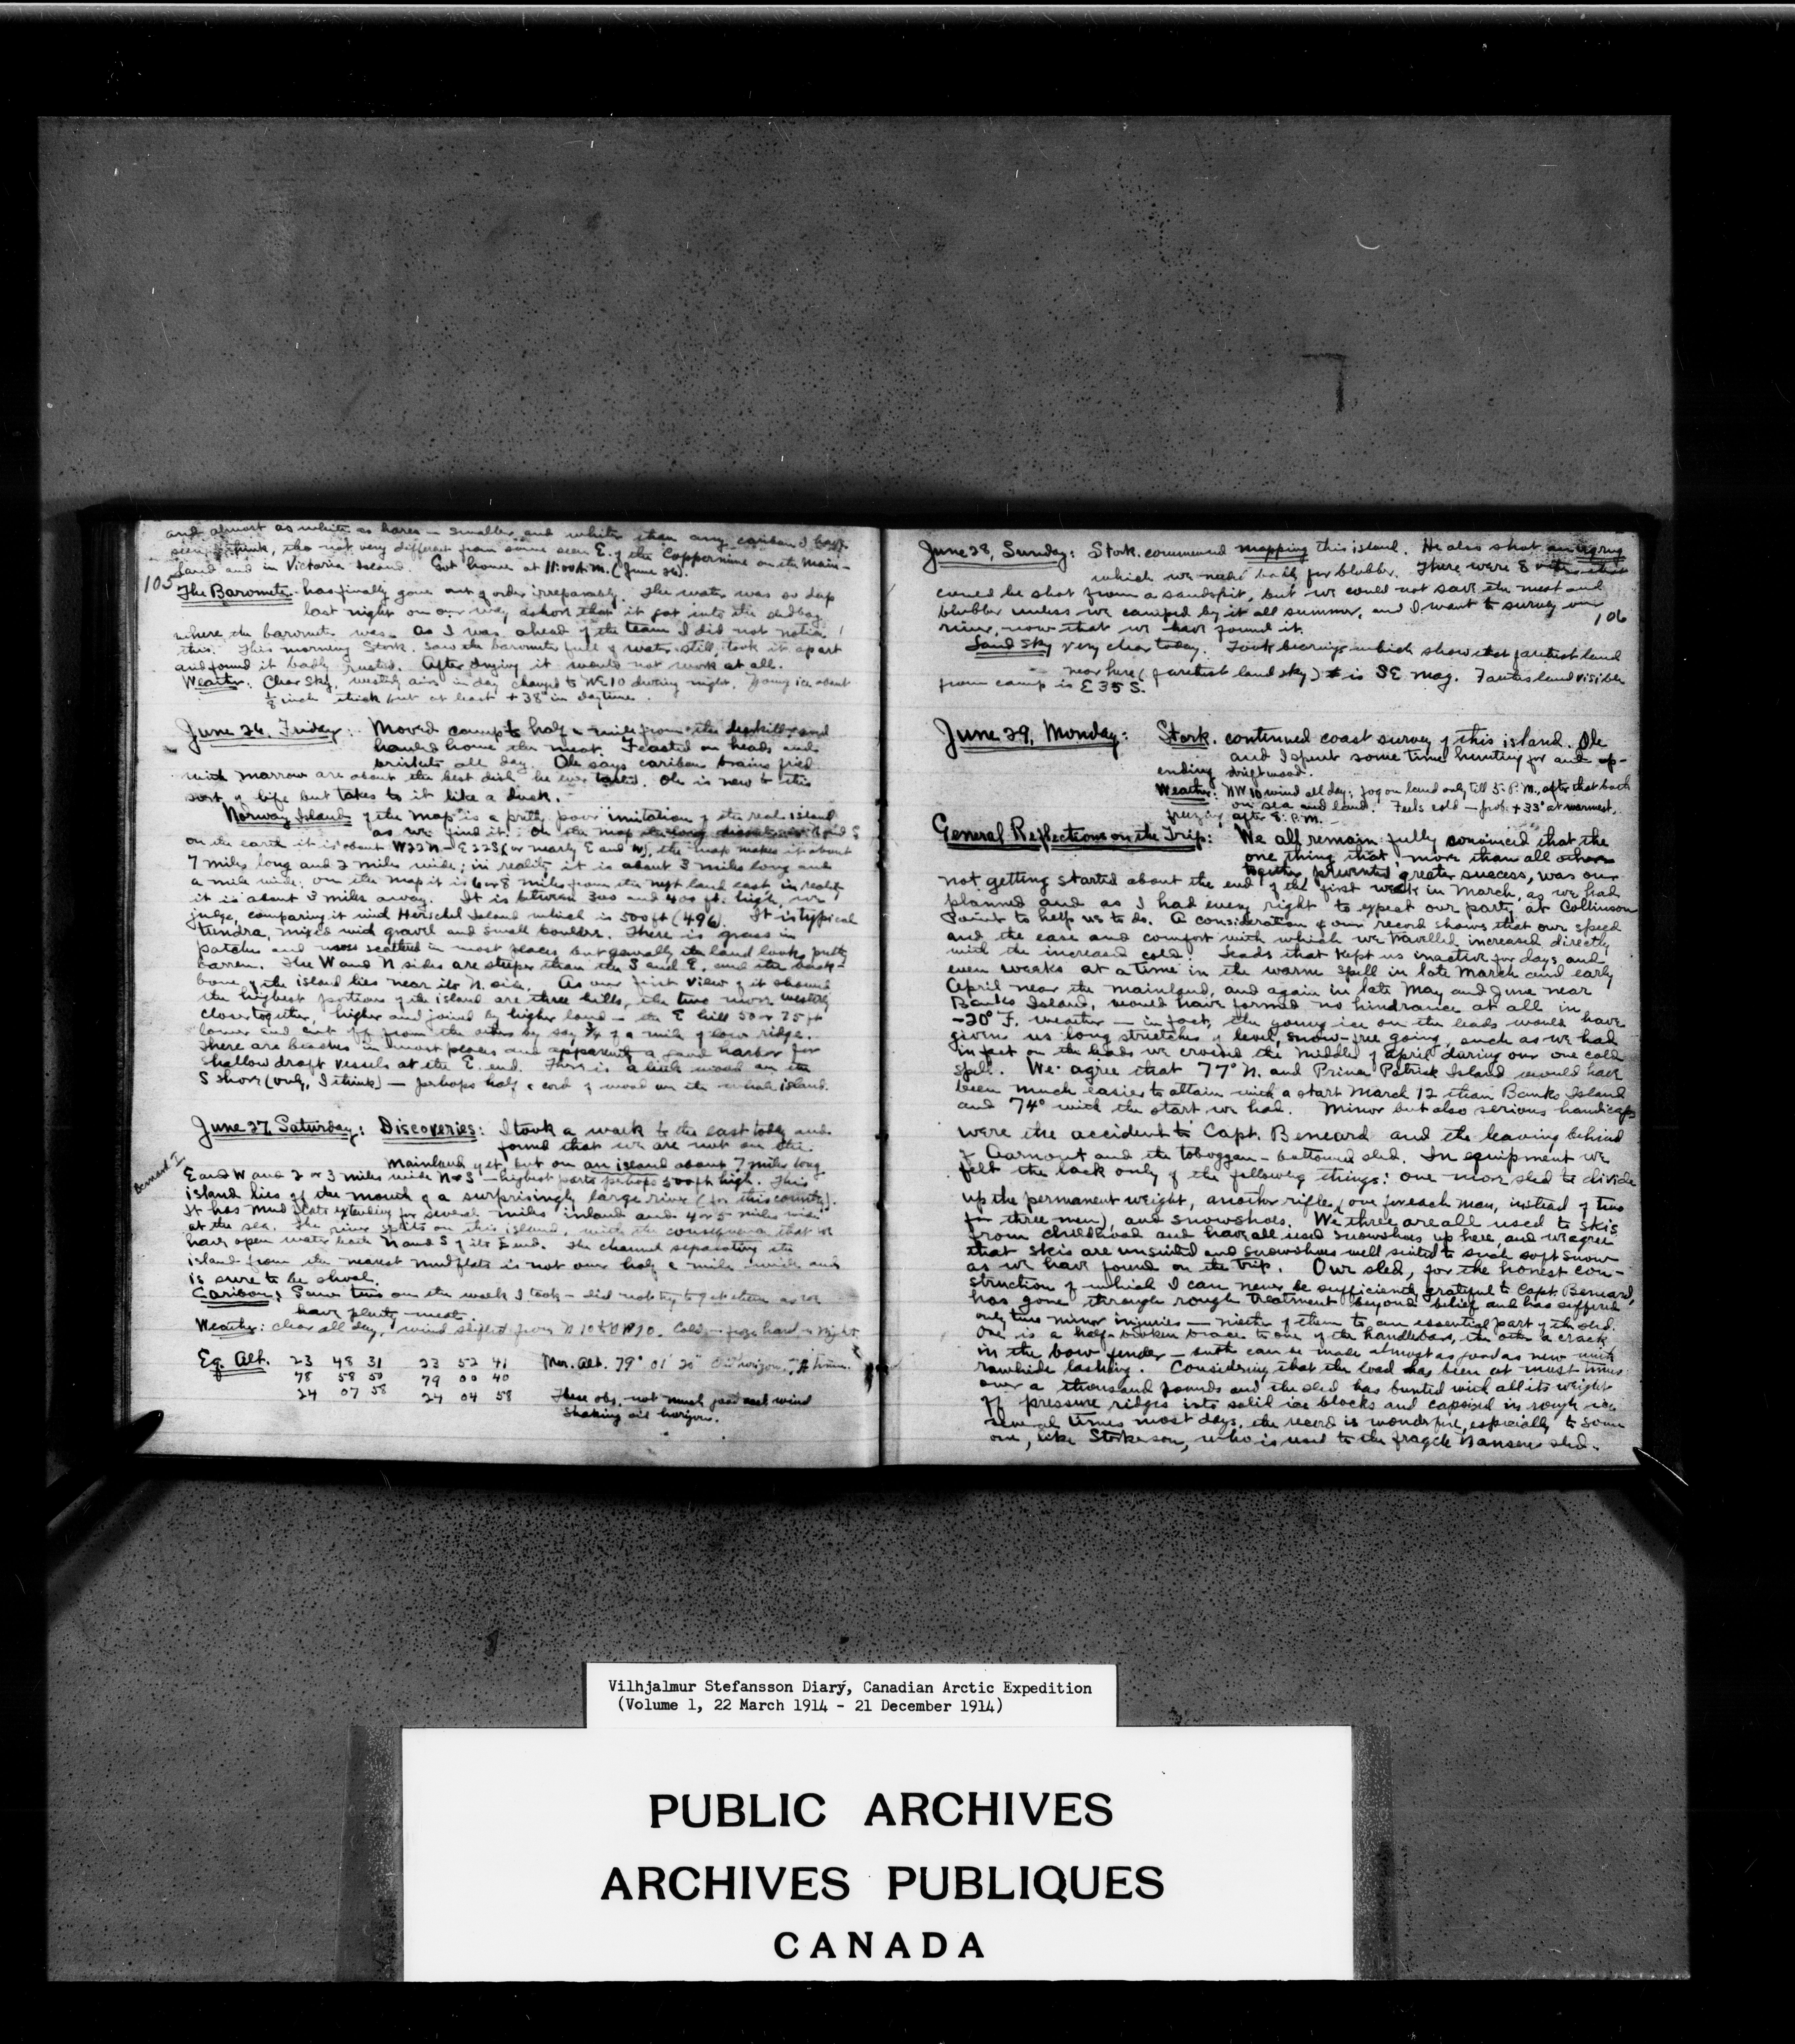 and almost as white as hares — smaller and whiter than any caribou I have
seen, I think, tho not very different from some seen E. of the Coppermine on the main-
land and in Victoria Island. Got home at 11:00 A.M. (June 26).
105
The Barometer has finally gone out of order irreparably. The water was so deep
last night on our way ashore that it got into the bag
where the barometer was. As I was ahead of the team I did not notice
this. This morning Stork. saw the barometer full of water still, took it apart
and found it badly rusted. After drying it would not work at all.
Weather: Clear sky, westerly airs in day changed to NE 10 during night. Young ice about
⅛ inch thick but at least +38° in daytime.
June 26, Friday: Moved camp to half a mile from the deerkill and
hauled home the meat. Feasted on heads and
briskets all day. Ole says caribou brains fried
with marrow are about the best dish he ever tasted. Ole is new to this
sort of life but takes to it like a duck.
Norway Island of the map is a pretty poor imitation of the real island
as we find it. On the map its long and S
on the earth it is about W22N–E22S (or nearly E and W), the map makes it about
7 miles long and 2 miles wide; in reality it is about 3 miles long and
a mile wide; on the map it is 6 or 8 miles from the nearest land east, in reality
it is about 3 miles away. It is between 300 and 400 ft. high, we
judge, comparing it with Herschel Island which is 500 ft (496). It is typical
tundra, mixed with gravel and small boulders. There is grass in
patches and moss scattered in most places but generally the land looks pretty
barren. The W and N sides are steeper than the S and E, and the back-
bone of the island lies near its N. side. As our first view of it showed
the highest portions of the island are three hills, the two more westerly
close together, higher and joined by higher land — the E hill 50 or 75 ft
lower and cut off from the others by say ¾ of a mile of low ridge.
There are beaches in most places and apparently a good harbor for
shallow draft vessels at the E. end. There is a little wood on the
S shore (only, I think) — perhaps half a cord of wood on the whole island.
June 27, Saturday: Discoveries: I took a walk to the east today and
found that we are not on the
mainland yet, but on an island about 7 miles long
Bernard I.
E and W and 2 or 3 miles wide N & S — highest parts perhaps 500 ft high. This
island lies off the mouth of a surprisingly large river (for this country).
It has mud flats extending for several miles inland and 4 or 5 miles wide
at the sea. The river splits on this island, with the consequence that we
have open water both N and S of its E end. The channel separating the
island from the nearest mudflats is not over half a mile wide and
is sure to be shoal.
Caribou: Saw two on the walk I took — did not try to get them as we
have plenty meat.
Weather: clear all day, wind slight from N 10 to NW 10. Cold — froze hard in night.
Eq. Alt. 23 48 31 23 52 41 Mer. Alt. 79° 01' 20" Oil horizon.
78 58 50 79 00 40
24 07 58 24 04 58 These obs. not much good and wind
shaking oil horizon.
June 28, Sunday: Stork. commenced mapping this island. He also shot an ugrug
which we need badly for blubber. There were 8 others that
could be shot from a sandspit, but we could not save the meat and
blubber unless we camped by it all summer, and I want to survey our
river, now that we have found it.
106
Land Sky very clear today. Took bearings which show that farthest land
near here (farthest land sky) is SE mag. Farthest land visible
from camp is E 35 S.
June 29, Monday: Stork. continued coast survey of this island. Ole
and I spent some time hunting for and up-
ending driftwood.
Weather: NW 10 wind all day; fog on land only till 5 P.M., after that both
on sea and land. Feels cold — prob. +33° at warmest,
freezing after 8: P.M.
General Reflections on the Trip: We all remain fully convinced that the
one thing that, more than all others
together, prevented greater success, was our
not getting started about the end of the first week in March, as we had
planned and as I had every right to expect our party at Collinson
Point to help us to do. A consideration of our record shows that our speed
and the ease and comfort with which we travelled increased directly
with the increased cold. Leads that kept us inactive for days and
even weeks at a time in the warm spell in late March and early
April near the mainland, and again in late May and June near
Banks Island, would have formed no hindrance at all in
-20° F. weather — in fact, the young ice on the leads would have
given us long stretches of level, snow-free going, such as we had
in fact on the leads we crossed the middle of April during our one cold
spell. We agree that 77° N. and Prince Patrick Island would have
been much easier to attain with a start March 12 than Banks Island
and 74° with the start we had. Minor but also serious handicaps
were the accident to Capt. Bernard and the leaving behind
of Aarnout and the toboggan-bottomed sled. In equipment we
felt the lack only of the following things: one more sled to divide
up the permanent weight, another rifle (one for each man, instead of two
for three men), and snowshoes. We three are all used to skis
from childhood and have all used snowshoes up here, and we agree
that skis are unsuited and snowshoes well suited to such soft snow
as we have found on the trip. Our sled, for the honest con-
struction of which I can never be sufficiently grateful to Capt. Bernard,
has gone through rough treatment beyond belief and has suffered
only two minor injuries — neither of them to an essential part of the sled.
One is a half-broken brace to one of the handlebars, the other a crack
in the bow fender — both can be made almost as good as new with
rawhide lashing. Considering that the load has been at most times
over a thousand pounds and the sled has bunted with all its weight
off pressure ridges into solid ice blocks and capsized in rough ice
several times most days, the record is wonderful, especially to some
one, like Storkerson, who is used to the fragile Nansen sled.
Vilhjalmur Stefansson Diary, Canadian Arctic Expedition
(Volume 1, 22 March 1914 - 21 December 1914)
PUBLIC ARCHIVES
ARCHIVES PUBLIQUES
CANADA